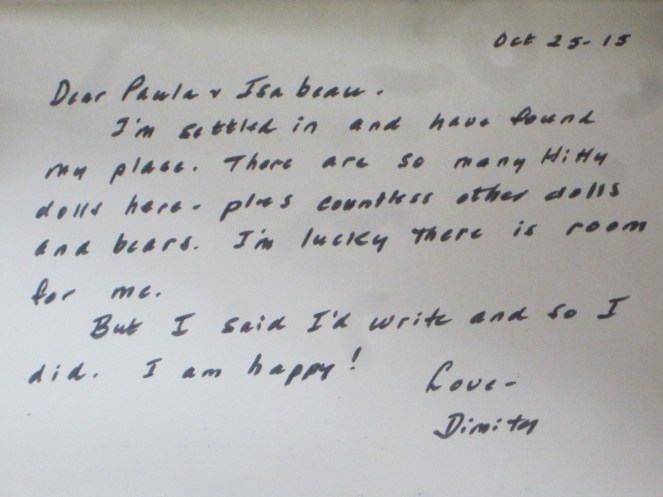 Oct 25-15
Dear Paula & Isabeau.
I'm settled in and have found
my place. There are so many Hitty
dolls here - plus countless other dolls
and bears. I'm lucky there is room
for me.
But I said I'd write and so I
did. I am happy!
Love-
Dimity